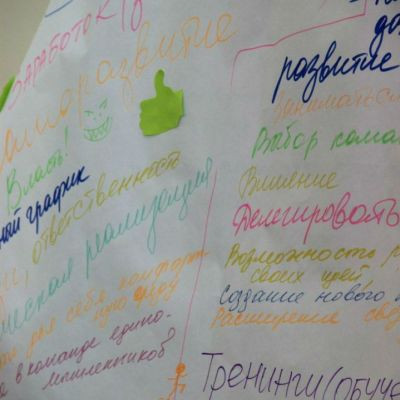 Заработок
Саморазвитие
Власть!
ный график
ответственность
ческая реализация
для себя комфорт-
ную среду
в команде едино-
мышленников
развитие
Заниматься
Выбор кома
Влияние
Делегировать
Возможность р
своих идей
Создание нового
Расширение све
Тренинги (обуче